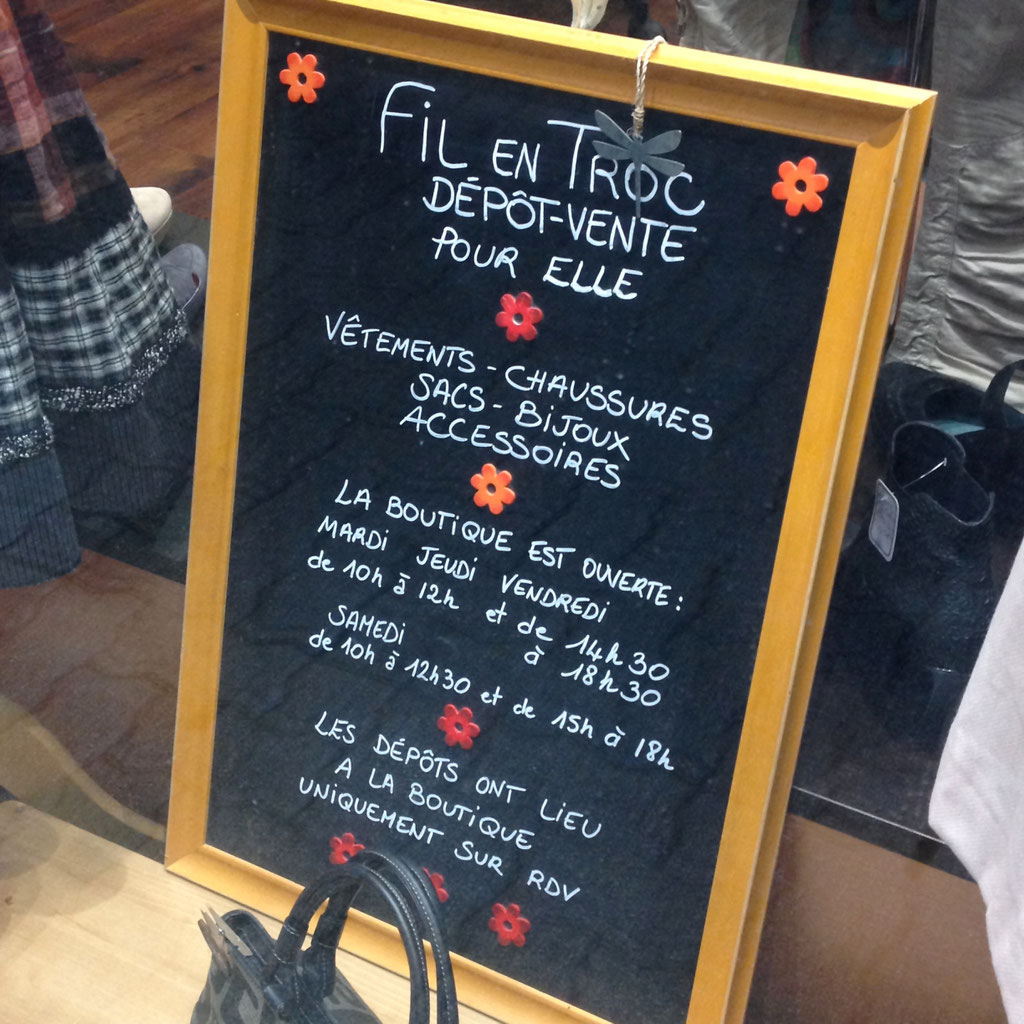 FiL EN TROC
DÉPÔT-VENTE
POUR ELLE
VÊTEMENTS - CHAUSSURES
SACS - BiJOUX
ACCESSOiRES
LA BOUTiQUE EST OUVERTE :
MARDi JEUDi VENDREDi
de 10h à 12h et de 14h30
à 18h30
SAMEDi
de 10h à 12h30 et de 15h à 18h
LES DÉPÔTS ONT LiEU
A LA BOUTiQUE
UNiQUEMENT SUR RDV